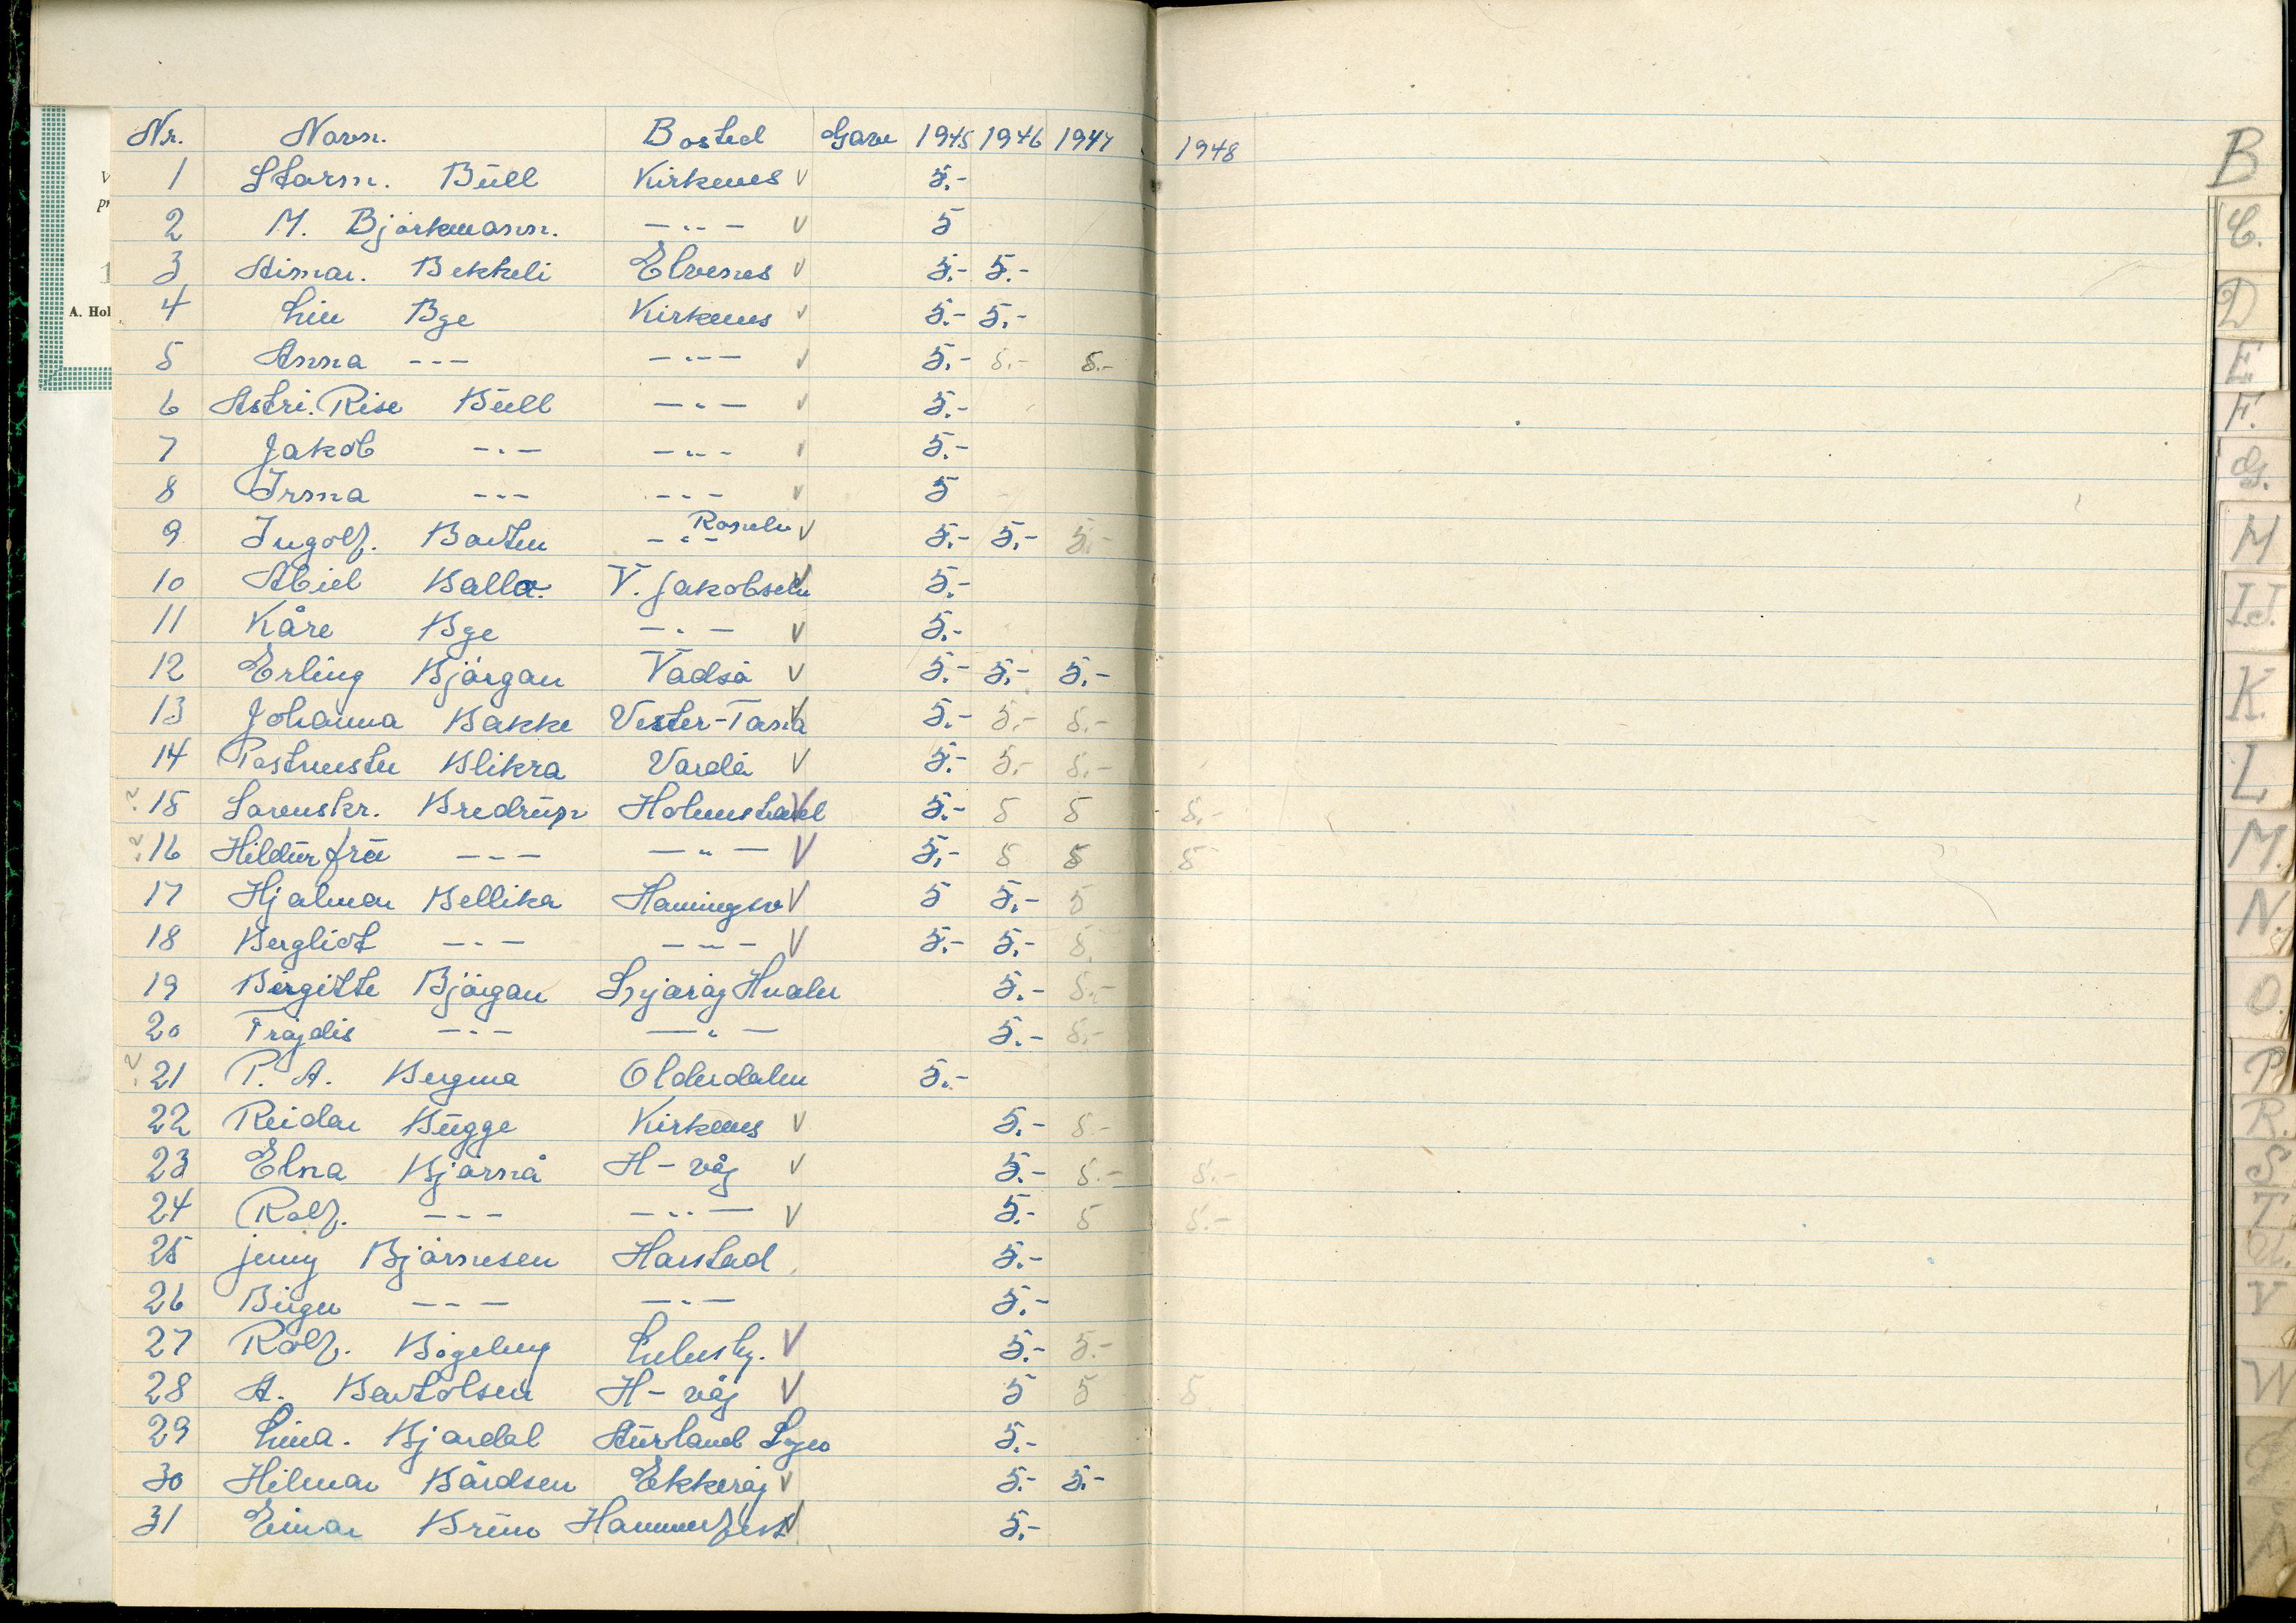 Nr. Navn. Bosted Gave 1945 1946 1947 1948
1 Storm. Bull Kirkenes v 5.-
2 M. Bjørkmann. -"- v 5
3 Aimar. Bekkeli Elvenes v 5.- 5.-
4 Liv Bye Kirkenes v 5.- 5.-
5 Anna --- -"- v 5.- 5.- 5.-
6 Astri. Rise Bull -"- v 5.-
7 Jakob --- -"- 5.-
8 Irma --- --- v 5
9 Ingolf. -"- v 5.- 5.- 5.-
10 Abiel Balla. V. Jakobselv v 5.-
11 Kåre Bye -"- v 5.-
12 Erling Bjørgan Vadsø v 5.- 5.- 5.-
13 Johanna Bakke Vester-Tana v 5.- 5.- 5.-
14 Postmester Blikra Vardø v 5.- 5.- 5.-
? 15 Sorenskr. Bredrup Holmestrand v 5.- 5 5 5.-
? 16 Hildur fru --- -"- v 5.- 5 5 5
17 Hjalmar Bellika Honningsv v 5 5.- 5
18 Bergliot --- -"- v 5.- 5.- 5.
19 Birgitte Bjørgan Hvaler 5.- 5.-
20 Frøjdis --- -"- 5.- 5.-
? 21 P. A. Bergmo Olderdalen 5.-
22 Reidar Bugge Kirkenes v 5.- 5.-
23 Elna Bjørnå H-våg v 5.- 5.- 5.-
24 Rolf. --- -"- v 5.- 5 5.-
25 Jenny Bjørnesen Harstad 5.-
26 Birger --- -"- 5.-
27 Rolf. v 5.- 5.-
28 A. Bertolsen H-våg v 5 5 5
29 Lina. Bjørdal Aurland Sogn 5.-
30 Hilmar Bårdsen Ekkerøy v 5.- 5.-
31 Einar Bruno Hammerfest v 5.-
A. Hol
B
C.
D
E.
F.
G.
H
I.J.
K.
L
M.
N.
O.
P
R.
S
T
U.
V
W